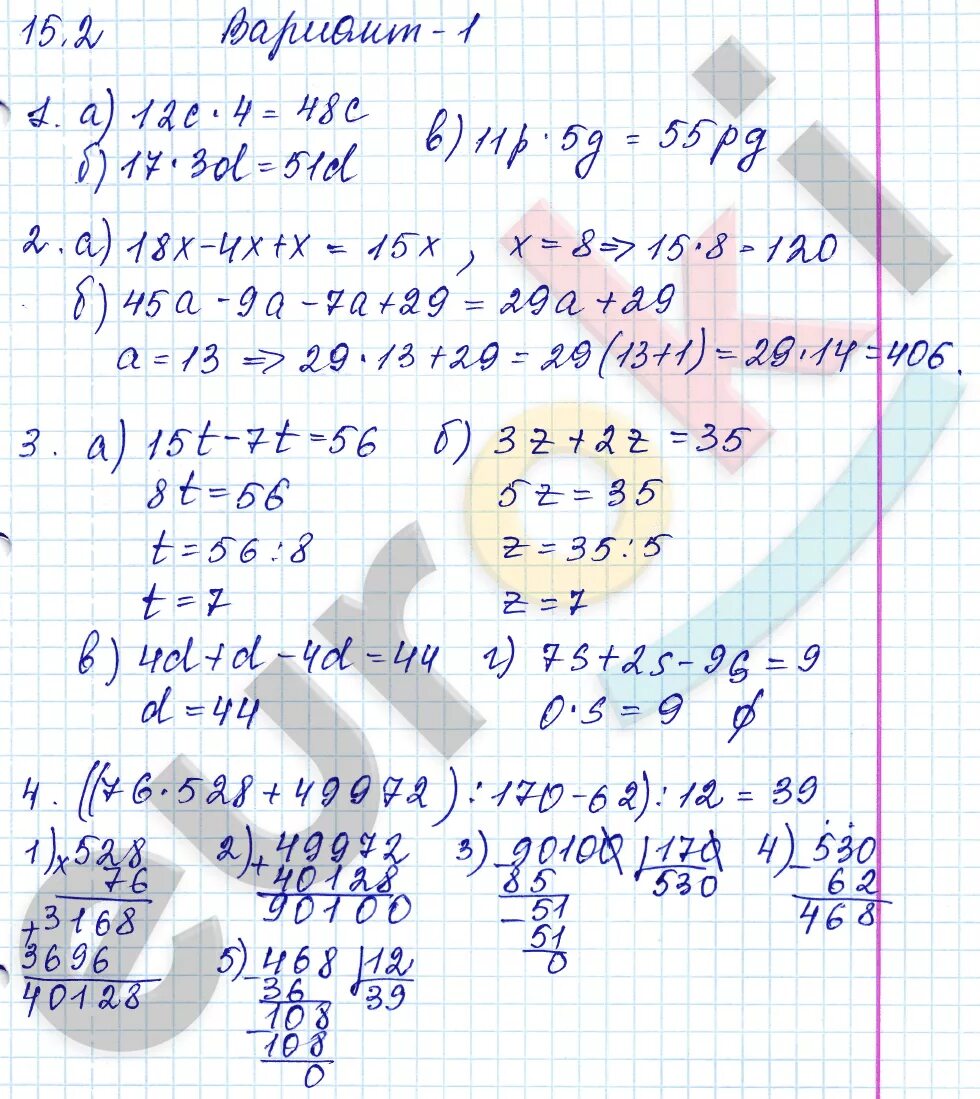 15.2 Вариант - 1
1. а) 12c · 4 = 48c
в) 11p · 5g = 55pg
б) 17 · 3d = 51d
2. а) 18x - 4x + x = 15x , x = 8 => 15 · 8 = 120
б) 45a - 9a - 7a + 29 = 29a + 29
a = 13 => 29 · 13 + 29 = 29 (13+1) = 29 · 14 = 406.
3. а) 15t - 7t = 56 б) 3z + 2z = 35
8t = 56 5z = 35
t = 56 : 8 z = 35 : 5
t = 7 z = 7
в) 4d + d - 4d = 44 г) 7s + 2s - 9s = 9
d = 44 0 · s = 9 ∅
4. ((76 · 528 + 49972) : 170 - 62) : 12 = 39
1) x 528 2) + 49972 3) - 90100 | 170 4) - 530
76 40128 85 530 62
+ 3168 90100 - 51 468
3696 51
40128 0
5) - 468 | 12
36 39
- 108
108
0
euroki